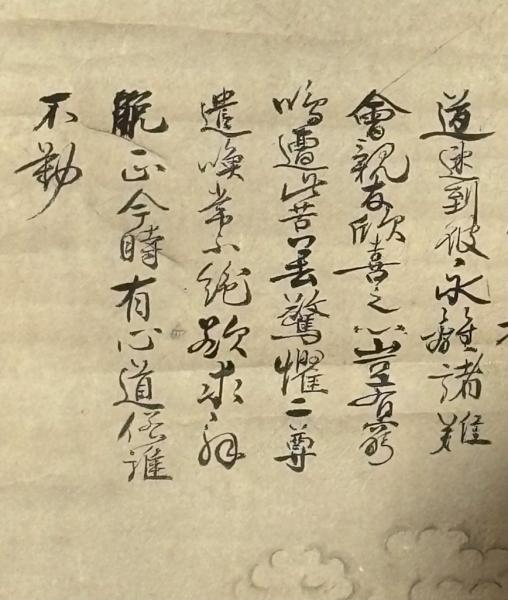 道速到彼永離諸難
會親友欣喜之心豈有窮
嗚遭此苦驚懼二尊
遣喚常不絶欲求解
脱正今時有心道俗誰
不勤